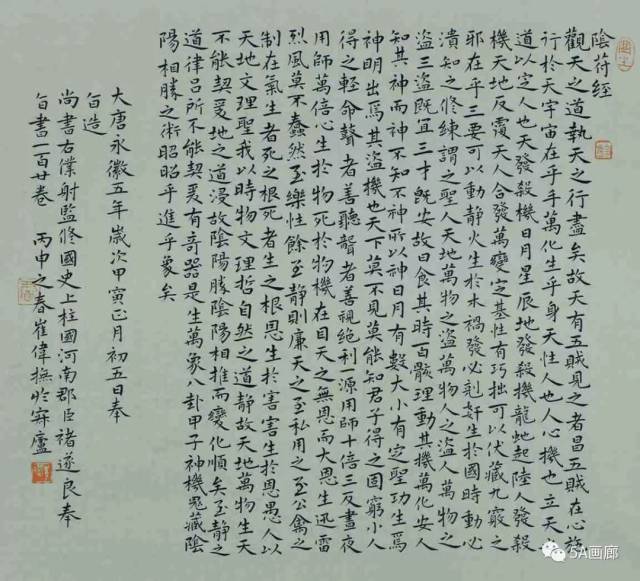 陰符經
觀天之道執天之行盡矣故天有五賊見之者昌五賊在心施
行於天宇宙在乎手萬化生乎身天性人也人心機也立天之
道以定人也天發殺機日月星辰地發殺機龍虵起陸人發殺
機天地反覆天人合發萬變定基性有巧拙可以伏藏九竅之
邪在乎三要可以動靜火生於木禍發必剋奸生於國時動必
潰知之修練謂之聖人天地萬物之盜萬物人之盜人萬物之
盜三盜既宜三才既安故曰食其時百骸理動其機萬化安人
知其神而神不知不神所以神日月有數大小有定聖功生焉
神明出焉其盜機也天下莫不見莫能知君子得之固窮小人
得之輕命瞽者善聽聾者善視絕利一源用師十倍三反晝夜
用師萬倍心生於物死於物機在目天之無恩而大恩生迅雷
烈風莫不蠢然至樂性餘至靜則廉天之至私用之至公禽之
制在氣生者死之根死者生之根恩生於害害生於恩愚人以
天地文理聖我以時物文理哲自然之道靜故天地萬物生天
不能契爰地之道浸故陰陽勝陰陽相推而變化順矣至靜之
道律呂所不能契爰有奇器是生萬象八卦甲子神機鬼藏陰
陽相勝之術昭昭乎進乎象矣
大唐永徽五年歲次甲寅正月初五日奉
旨造
尚書右僕射監修國史上柱國河南郡臣褚遂良奉
旨書一百廿卷 丙申之春崔偉撫於寐廬
5A画廊